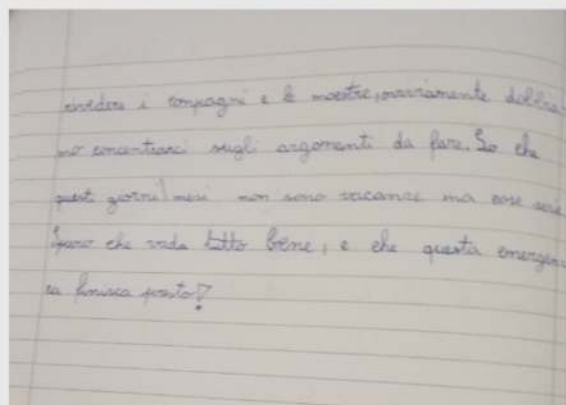 rivedere i compagni e le maestre, ovviamente dobbia
mo concentrarci sugli argomenti da fare. So che
questi giorni/mesi non sono vacanze ma cose serie.
Spero che vada tutto bene, e che questa emergen
za finisca presto!